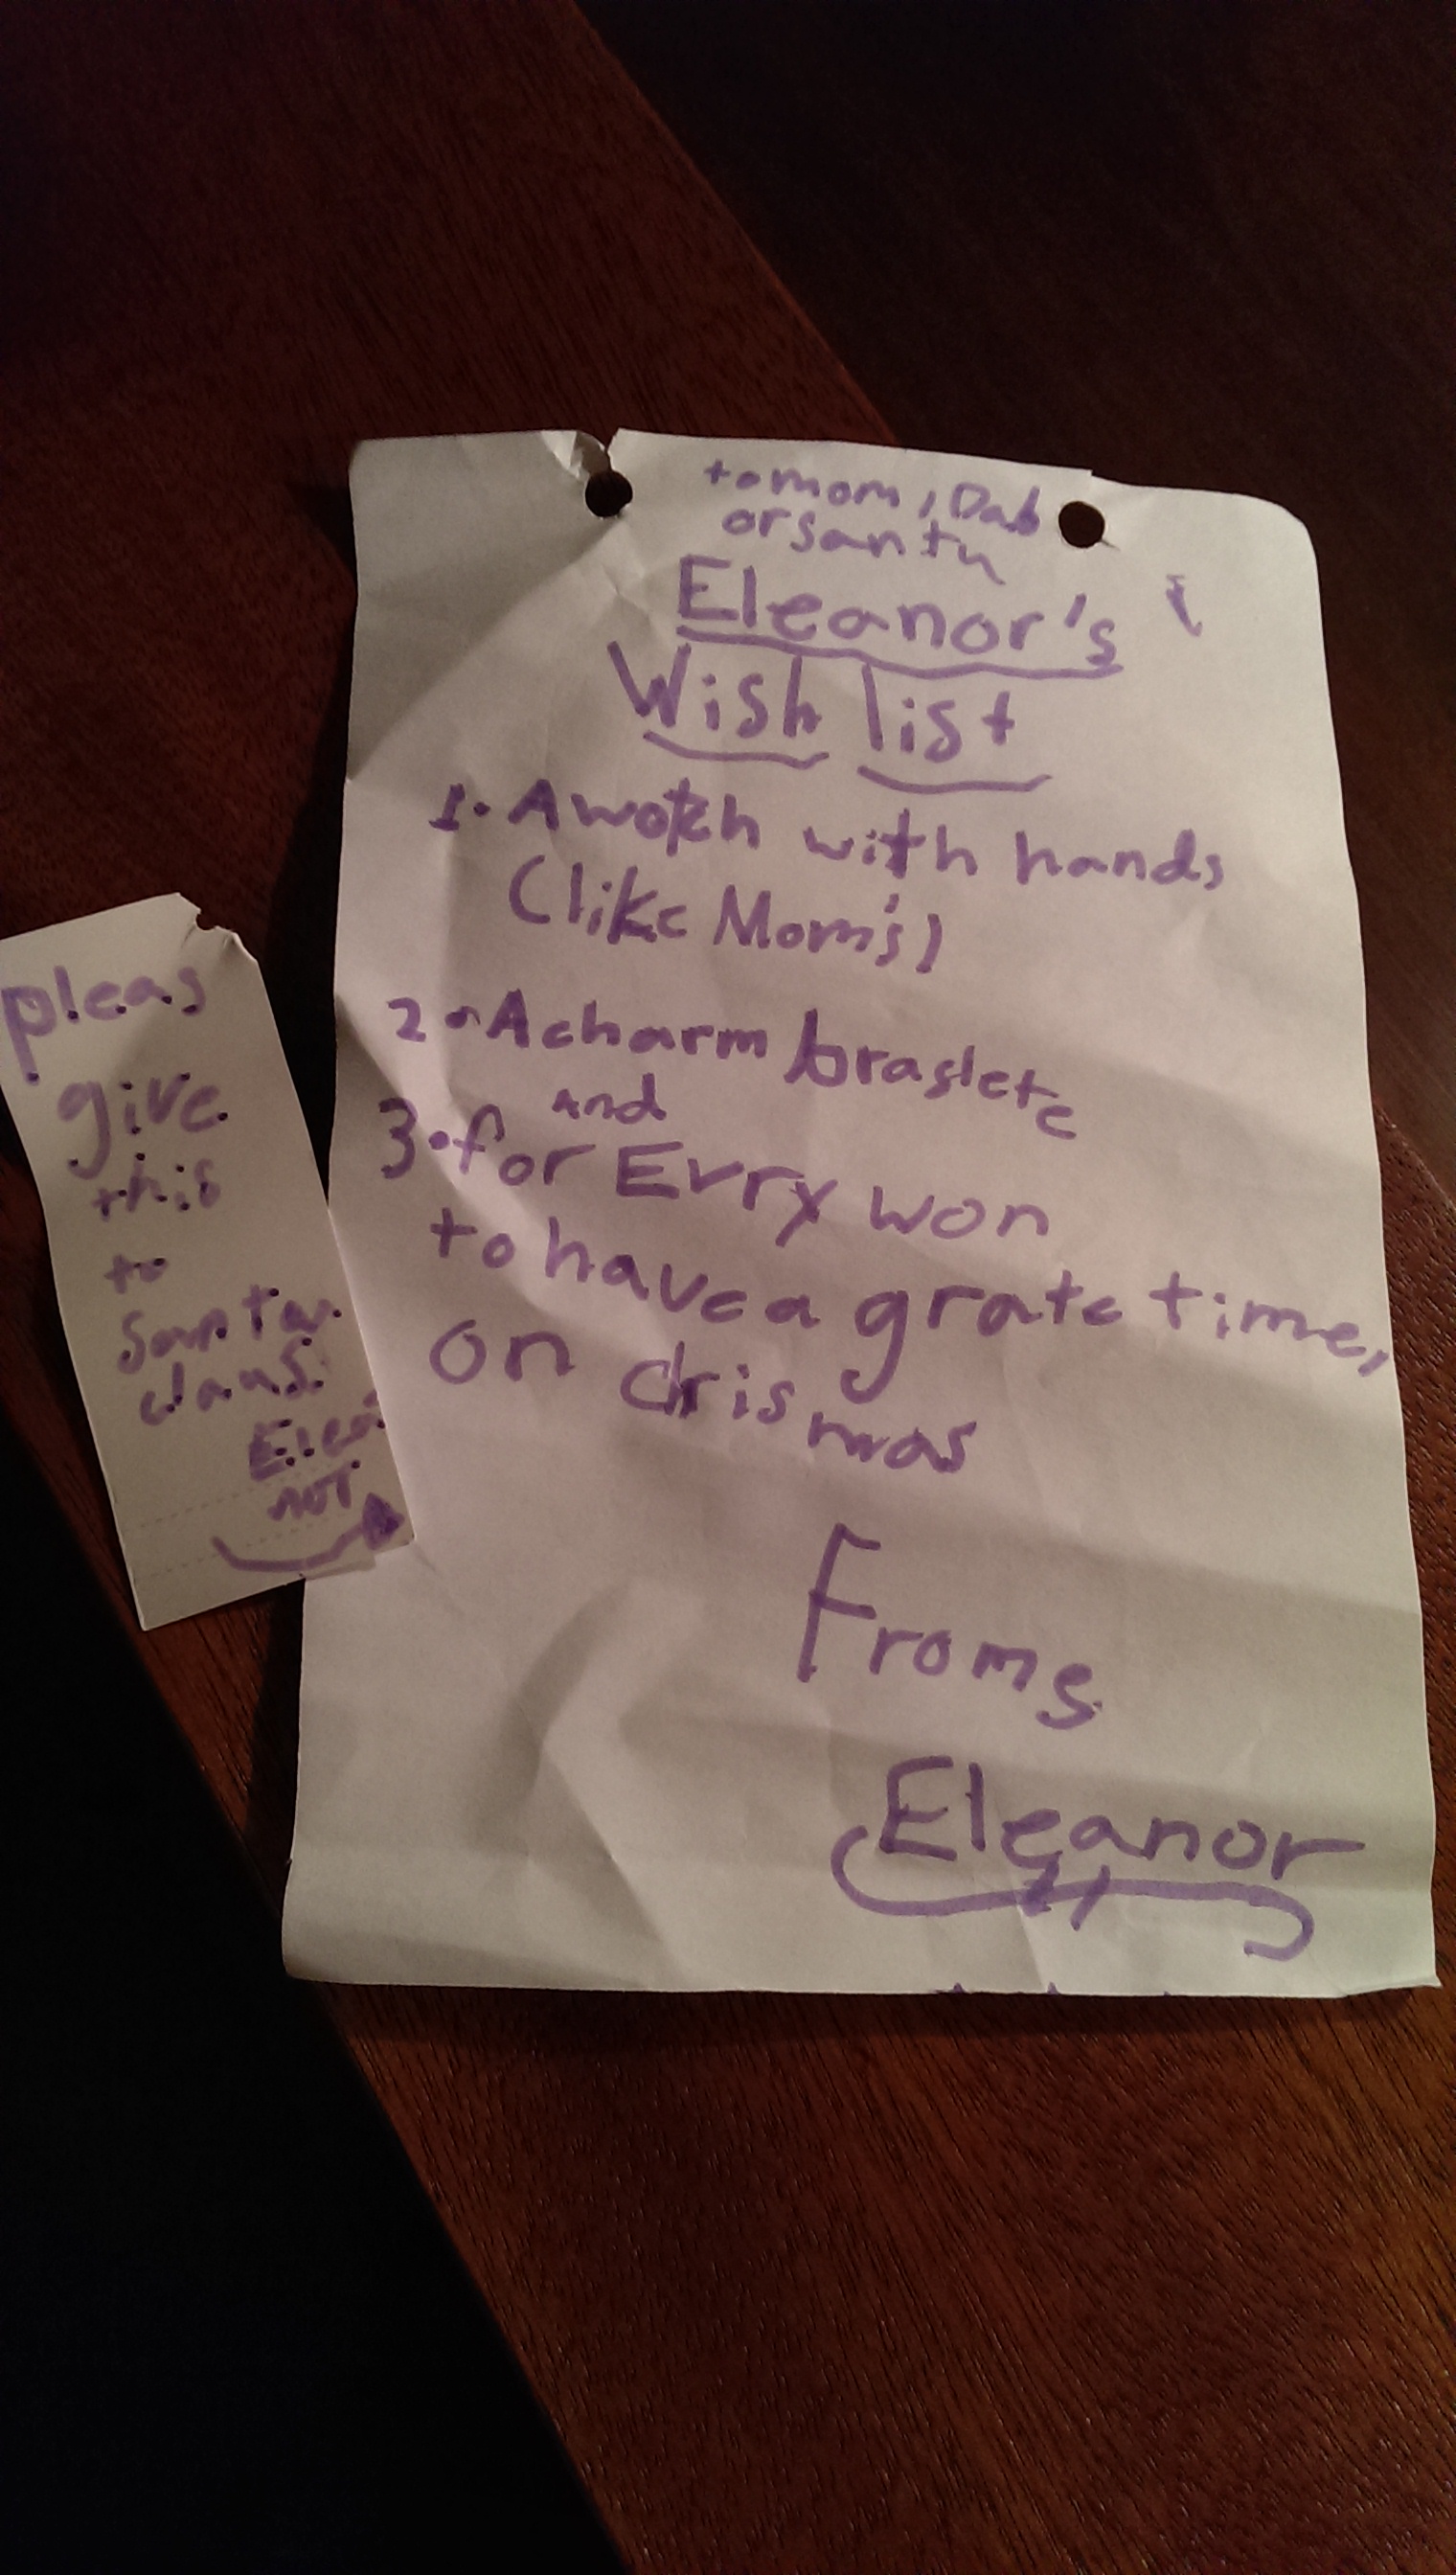 to mom, Dab
or santu
Eleanor's
Wish list
1. A wotch with hands
(like Mom's)
2. A charm braslete
and
3. for Evry won
to have a grate time,
on chrismas
From
Eleanor
pleas
give
this
to
Santa
claus.
Elea
nor